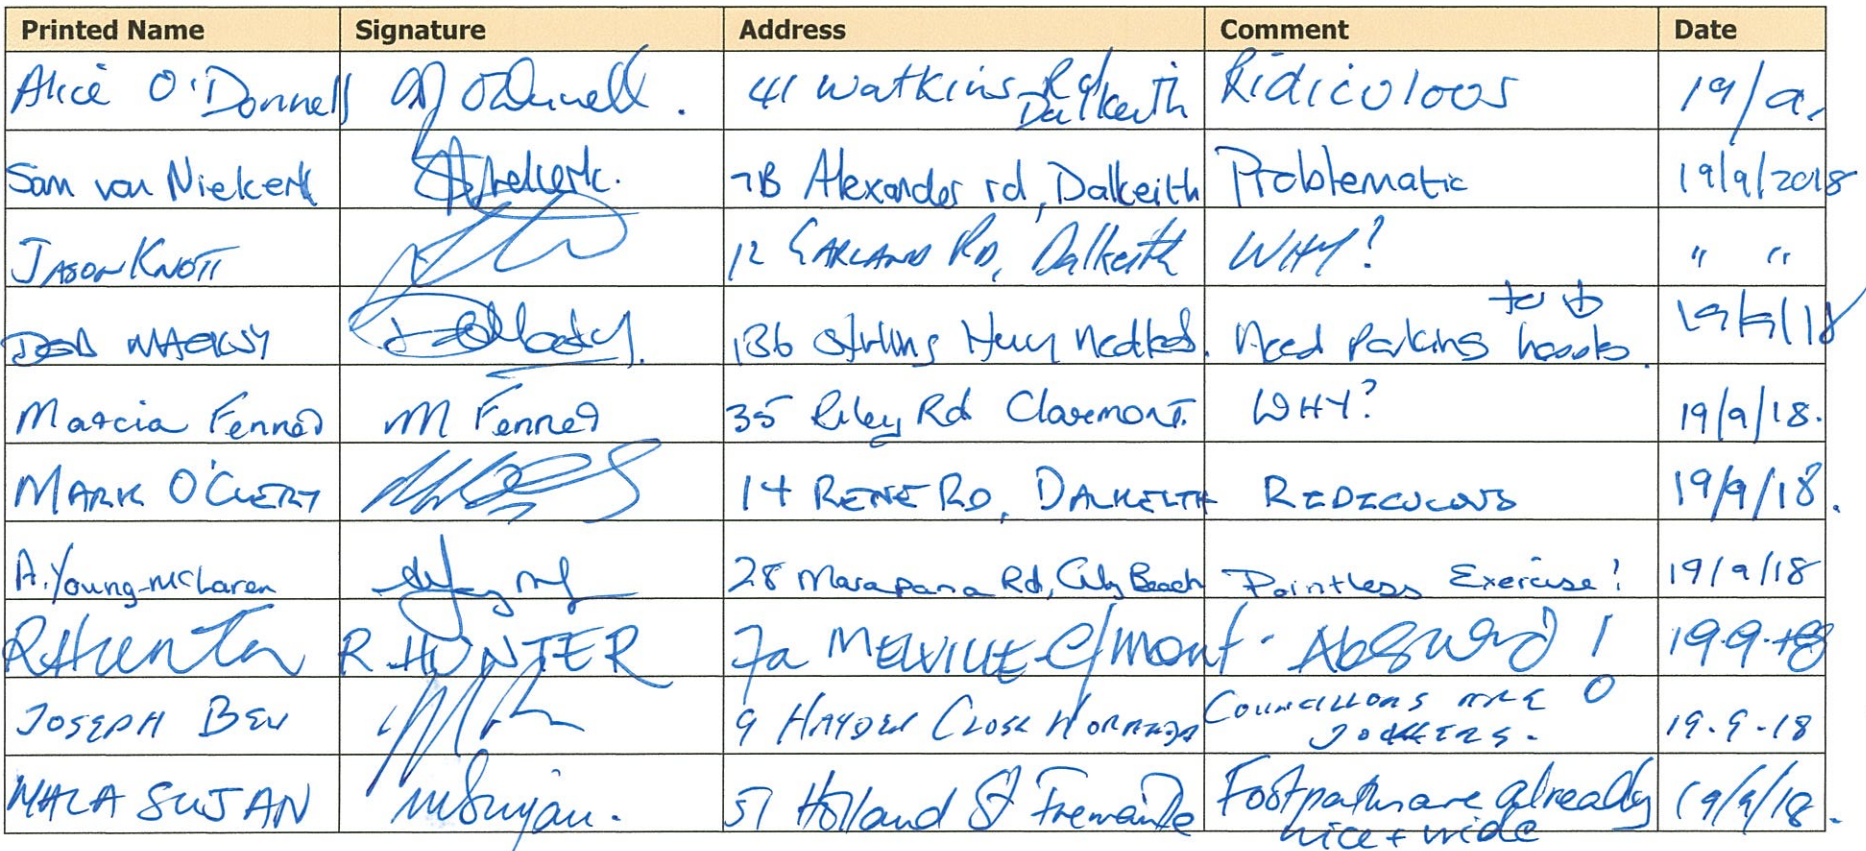 Printed Name Signature Address Comment Date
Alice O'Donnell O'Donnell. 41 Watkins Rd Dalkeith Ridiculoos 19/9.
Sam van Niekerk 7B Alexander rd, Dalkeith Problematic 19/9/2018
JASON KNOTT 12 GARLAND RD, Dalkeith WHY? " "
136 Stirling Hwy Need parking to 19/9/18
Marcia Fenned M Fenned 35 Riley Rd Claremont. WHY? 19/9/18.
MARK O'CLERY 14 RENE RD, DALKEITH REDICULOUS 19/9/18.
A. Young-McLaren 28 Marapana Rd, City Beach Pointless Exercise! 19/9/18
RHunter R HUNTER 7a MELVILLE C/mont. Absurd! 19.9.18
JOSEPH 9 CLOSE COUNCILLORS ARE 19.9.18
MALA SUJAN MSujan. 51 Holland St Fremantle Footpaths are already nice + wide 19/9/18.